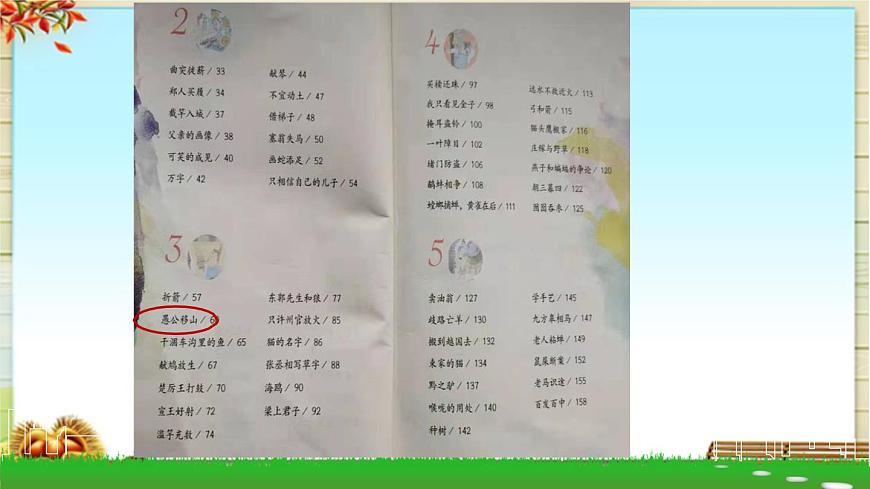 2
曲突徙薪 / 33
郑人买履 / 34
截竿入城 / 37
父亲的画像 / 38
可笑的成见 / 40
万字 / 42
献琴 / 44
不宜动土 / 47
借梯子 / 48
塞翁失马 / 50
画蛇添足 / 52
只相信自己的儿子 / 54
3
折箭 / 57
愚公移山 / 6
干涸车沟里的鱼 / 65
献鸠放生 / 67
楚厉王打鼓 / 70
宣王好射 / 72
滥竽充数 / 74
东郭先生和狼 / 77
只许州官放火 / 85
猫的名字 / 86
张丞相写草字 / 88
海鸥 / 90
梁上君子 / 92
4
买椟还珠 / 97
我只看见金子 / 98
掩耳盗铃 / 100
一叶障目 / 102
堵门防盗 / 106
鹬蚌相争 / 108
螳螂捕蝉，黄雀在后 / 111
远水不救近火 / 113
弓和箭 / 115
猫头鹰搬家 / 116
庄稼与野草 / 118
燕子和蝙蝠的争论 / 120
朝三暮四 / 122
囫囵吞枣 / 125
5
卖油翁 / 127
歧路亡羊 / 130
搬到越国去 / 132
束家的猫 / 134
黔之驴 / 137
喉咙的用处 / 140
种树 / 142
学手艺 / 145
九方皋相马 / 147
老人粘蝉 / 149
鼠屎断案 / 152
老马识途 / 155
百发百中 / 158